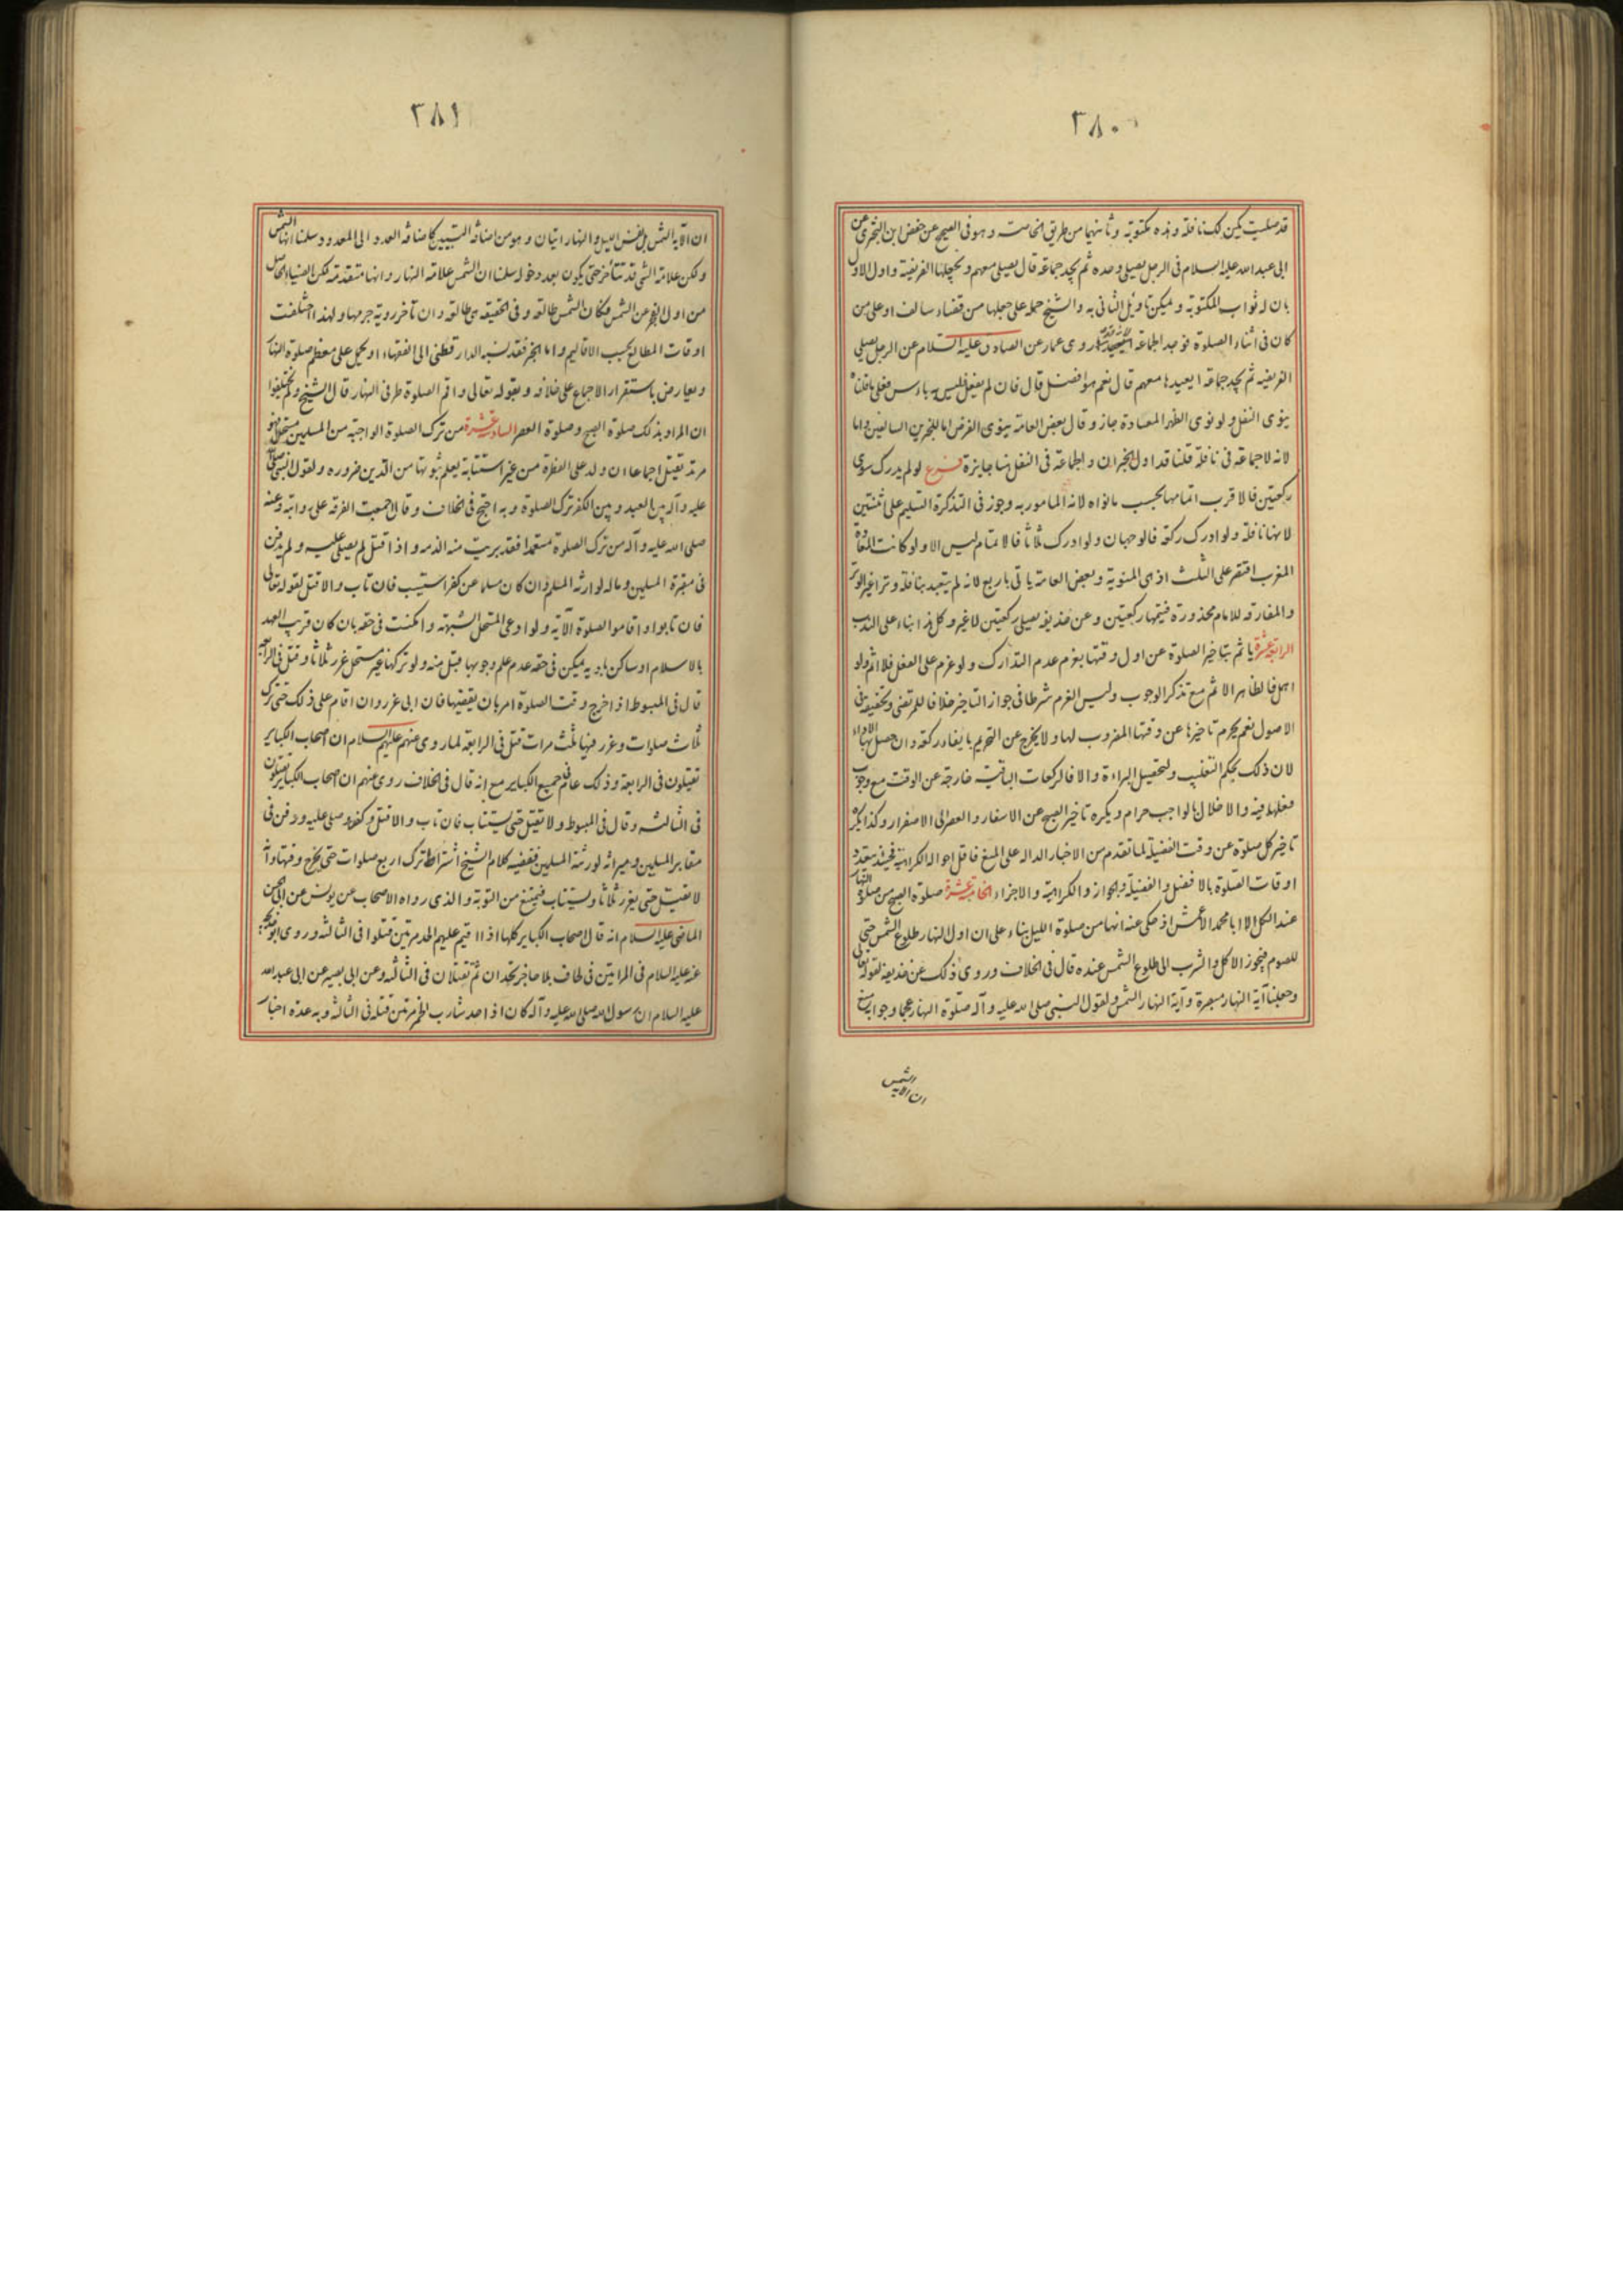 ٣٨٠
قد صليت يكن لك نافلة وهذه مكتوبة وثانيهما من طريق الخاصة وهو في الصحيح عن حفص ابن البختري عن
ابي عبد الله عليه السلام في الرجل يصلي وحده ثم يجد جماعة قال يصلي معهم ويجعلها الفريضة واول الاول
بان له ثواب المكتوبة ويمكن تاويل الثاني به والشيخ حمله على جعلها من قضاء سالف او على من
كان في اثناء الصلوة فوجد الجماعة روى عمار عن الصادق عليه السلام عن الرجل يصلي
الفريضة ثم يجد جماعة ايعيدها معهم قال نعم هو افضل قال فان لم يفعل ليس به باس فعلى ما قلناه
ينوى النفل ولو نوى الظهر المعادة جاز وقال بعض العامة ينوى الفرض اما للخبرين السالفين واما
لانه لا جماعة في نافلة قلنا قد اول الخبران والجماعة في النفل هنا جايزة فرع لو لم يدرك سوى
ركعتين فالاقرب اتمامها بحسب ما نواه لانه المامور به وجوز في التذكرة التسليم على اثنتين
لانها نافلة ولو ادرك ركعة فالوجهان ولو ادرك ثلاثا فالاتمام ليس الا ولو كانت المعادة
المغرب اقتصر على الثلث اذ هي المنوية وبعض العامة ياتي باربع لانه لم يتعبد بنافلة وترا غير الوتر
والمفارقة للامام محذورة فيتمها ركعتين وعن حذيفة يصلي ركعتين لا غير وكل هذا بناء على الندب
الرابعة عشرة ياثم بتاخير الصلوة عن اول وقتها بعزم عدم التدارك ولو عزم على الفعل فلا اثم ولو
اهمل فالظاهر الاثم مع تذكر الوجوب وليس العزم شرطا في جواز التاخير خلافا للمرتضى وتحقيقه في
الاصول نعم يحرم تاخيرها عن وقتها المضروب لها ولا يخرج عن التحريم بايقاع ركعة وان حصل بها الاداء
لان ذلك بحكم التغليب ولتحصيل البراءة والا فالركعات الباقية خارجة عن الوقت مع وجوب
فعلها فيه والاخلال بالواجب حرام ويكره تاخير الصبح عن الاسفار والعصر الى الاصفرار وكذا يكره
تاخير كل صلوة عن وقت الفضيلة لما تقدم من الاخبار الدالة على المنع فاقل احواله الكراهية فحينئذ يتعدد
اوقات الصلوة بالافضل والفضيلة والجواز والكراهية والاجزاء الخامسة عشرة صلوة الصبح من صلوة النهار
عند الكل الا ابا محمد الاعمش اذ حكى عنه انها من صلوة الليل بناء على ان اول النهار طلوع الشمس حتى
للصوم فيجوز الاكل والشرب الى طلوع الشمس عنده قال في الخلاف وروى ذلك عن حذيفة لقوله تعالى
وجعلنا آية النهار مبصرة وآية النهار الشمس ولقول النبي صلى الله عليه وآله صلوة النهار عجما وجوابه منع
ان الآية الشمس
٣٨١
ان الآية الشمس بل نفس الليل والنهار ايتان وهو من اضافة التبيين كاضافة العدد الى المعدود وسلمنا انها الشمس
ولكن علامة الشي قد تتأخر حتى يكون بعد دخوله سلمنا ان الشمس علامة النهار وانها متقدمة لكن الضياء الحاصل
من اول الفجر عن الشمس فكان الشمس طالعة وفي الحقيقة هي طالعة وان تاخر روية جرمها ولهذا اختلفت
اوقات المطالع بحسب الاقاليم واما الخبر فقد نسبه الدارقطني الى الفقهاء او يحمل على معظم صلوة النهار
ويعارض باستقرار الاجماع على خلافه وبقوله تعالى واقم الصلوة طرفي النهار قال الشيخ ولم يختلفوا
ان المراد بذلك صلوة الصبح وصلوة العصر السادسة عشرة من ترك الصلوة الواجبة من المسلمين مستحلا فهو
مرتد يقتل اجماعا ان ولد على الفطرة من غير استتابة يعلم ثبوتها من الدين ضرورة ولقول النبي صلى الله
عليه وآله بين العبد وبين الكفر ترك الصلوة وبه احتج في الخلاف وقال اجمعت الفرقة على روايته وعنه
صلى الله عليه وآله من ترك الصلوة متعمدا فقد بريت منه الذمه واذا قتل لم يصلى عليه ولم يدفن
في مقبرة المسلمين وماله لوارثه المسلم وان كان مسلما عن كفر استتيب فان تاب والا قتل لقوله تعالى
فان تابوا واقاموا الصلوة الآية ولو ادعى المستحل الشبهة وامكنت في حقه بان كان قريب العهد
بالاسلام او ساكن بادية يمكن في حقه عدم علم وجوبها قبل منه ولو تركها غير مستحل عزر ثلاثا وقتل في الرابعة
قال في المبسوط اذا خرج وقت الصلوة امر بان يقضيها فان ابى عزر وان اقام على ذلك حتى ترك
ثلاث صلوات وعزر فيها ثلث مرات قتل في الرابعة لما روى عنهم عليهم السلام ان اصحاب الكباير
تقتلون في الرابعة وذلك عام في جميع الكباير مع انه قال في الخلاف روى عنهم ان اصحاب الكباير يقتلون
في الثالثه وقال في المبسوط ولا تقتل حتى يستتاب فان تاب والا قتل وكفن وصلى عليه ودفن في
مقابر المسلمين وميراثه لورثة المسلمين فقضيه كلام الشيخ اشتراط ترك اربع صلوات حتى يخرج وقتها وانه
لا تقتل حتى يعزر ثلاثا ويستتاب فيمتنع من التوبة والذي رواه الاصحاب عن يونس عن ابي الحسن
الماضي عليه السلام انه قال اصحاب الكباير كلها اذا اقيم عليهم الحد مرتين قتلوا في الثالثه وروى ابو خديجة
عنه عليه السلام في المراتين في لحاف بلا حاجز تحدان ثم تقتلان في الثالثه وعن ابي بصير عن ابي عبد الله
عليه السلام ان رسول الله صلى الله عليه وآله كان اذا حد شارب الخمر مرتين قتله في الثالثة وبه عدة اخبار